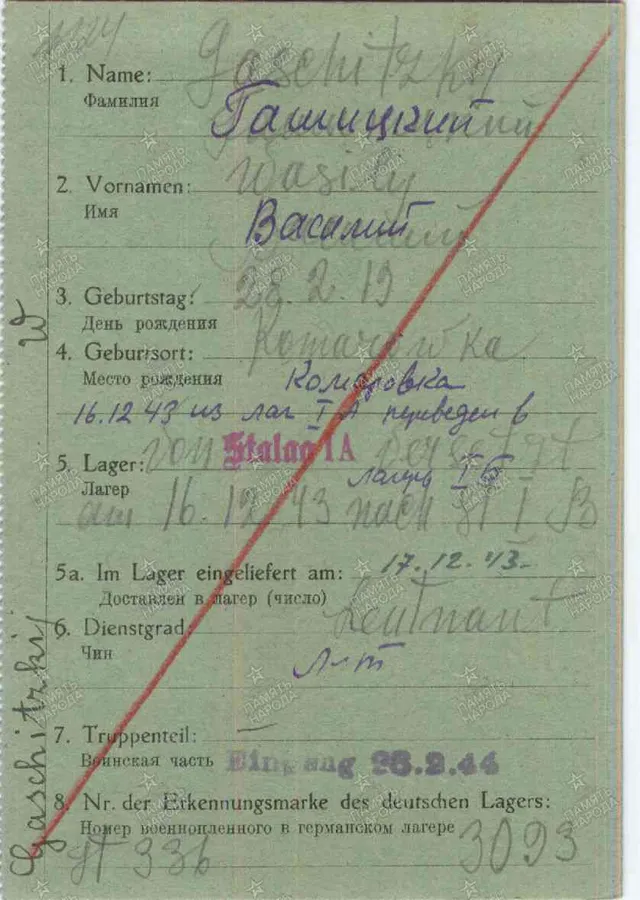 1. Name: Gaschitzkij
Фамилия Гашицкий
2. Vornamen: Wasily
Имя Василий
3. Geburtstag: 28.2.19
День рождения
4. Geburtsort: Komarowka
Место рождения Комаровка
16.12.43 из лаг IA переведен в
5. Lager: von Stalag IA versetzt
Лагер лагерь IБ
am 16.12.43 nach St I B
5a. Im Lager eingeliefert am: 17.12.43.
Доставлен в лагер (число)
6. Dienstgrad: Leutnant
Чин Л-т
7. Truppenteil: —
Воинская часть Eingang 26.2.44
8. Nr. der Erkennungsmarke des deutschen Lagers:
Номер военнопленного в германском лагере 3093
St 336
Gaschitzkij W
ПАМЯТЬ НАРОДА